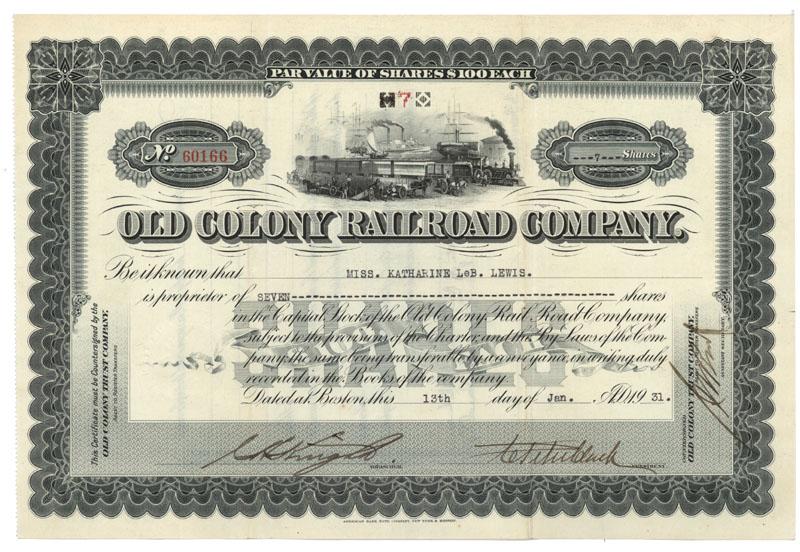 PAR VALUE OF SHARES $100 EACH
7
No. 60166
---7--- Shares
OLD COLONY RAILROAD COMPANY.
Be it known that MISS. KATHARINE LeB. LEWIS.
is proprietor of SEVEN shares
in the Capital Stock of the Old Colony Rail Road Company,
subject to the provisions of the Charter and the By Laws of the Com-
pany, the same being transferable by a conveyance, in writing, duly
recorded in the Books of the company.
Dated at Boston, this 13th day of Jan. A.D. 1931.
TREASURER.
PRESIDENT.
This Certificate must be Countersigned by the
OLD COLONY TRUST COMPANY,
Agent to Register Transfers
COUNTERSIGNED
OLD COLONY TRUST COMPANY,
AMERICAN BANK NOTE COMPANY, NEW YORK & BOSTON.